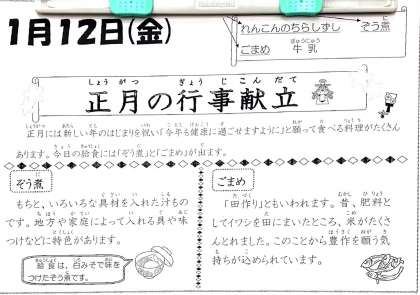 1月12日(金)
れんこんのちらしずし ぞう煮
ごまめ 牛乳
正月の行事献立
正月には新しい年のはじまりを祝い「今年も健康に過ごせますように」と願って食べる料理がたくさん
あります。今日の給食には「ぞう煮」と「ごまめ」が出ます。
ぞう煮
もちと、いろいろな具材を入れた汁もの
です。地方や家庭によって入れる具や味
つけなどに特色があります。
給食は、白みそで味を
つけたぞう煮です。
ごまめ
「田作り」ともいわれます。昔、肥料と
してイワシを田にまいたところ、米がたくさ
んとれました。このことから豊作を願う気
持ちが込められています。